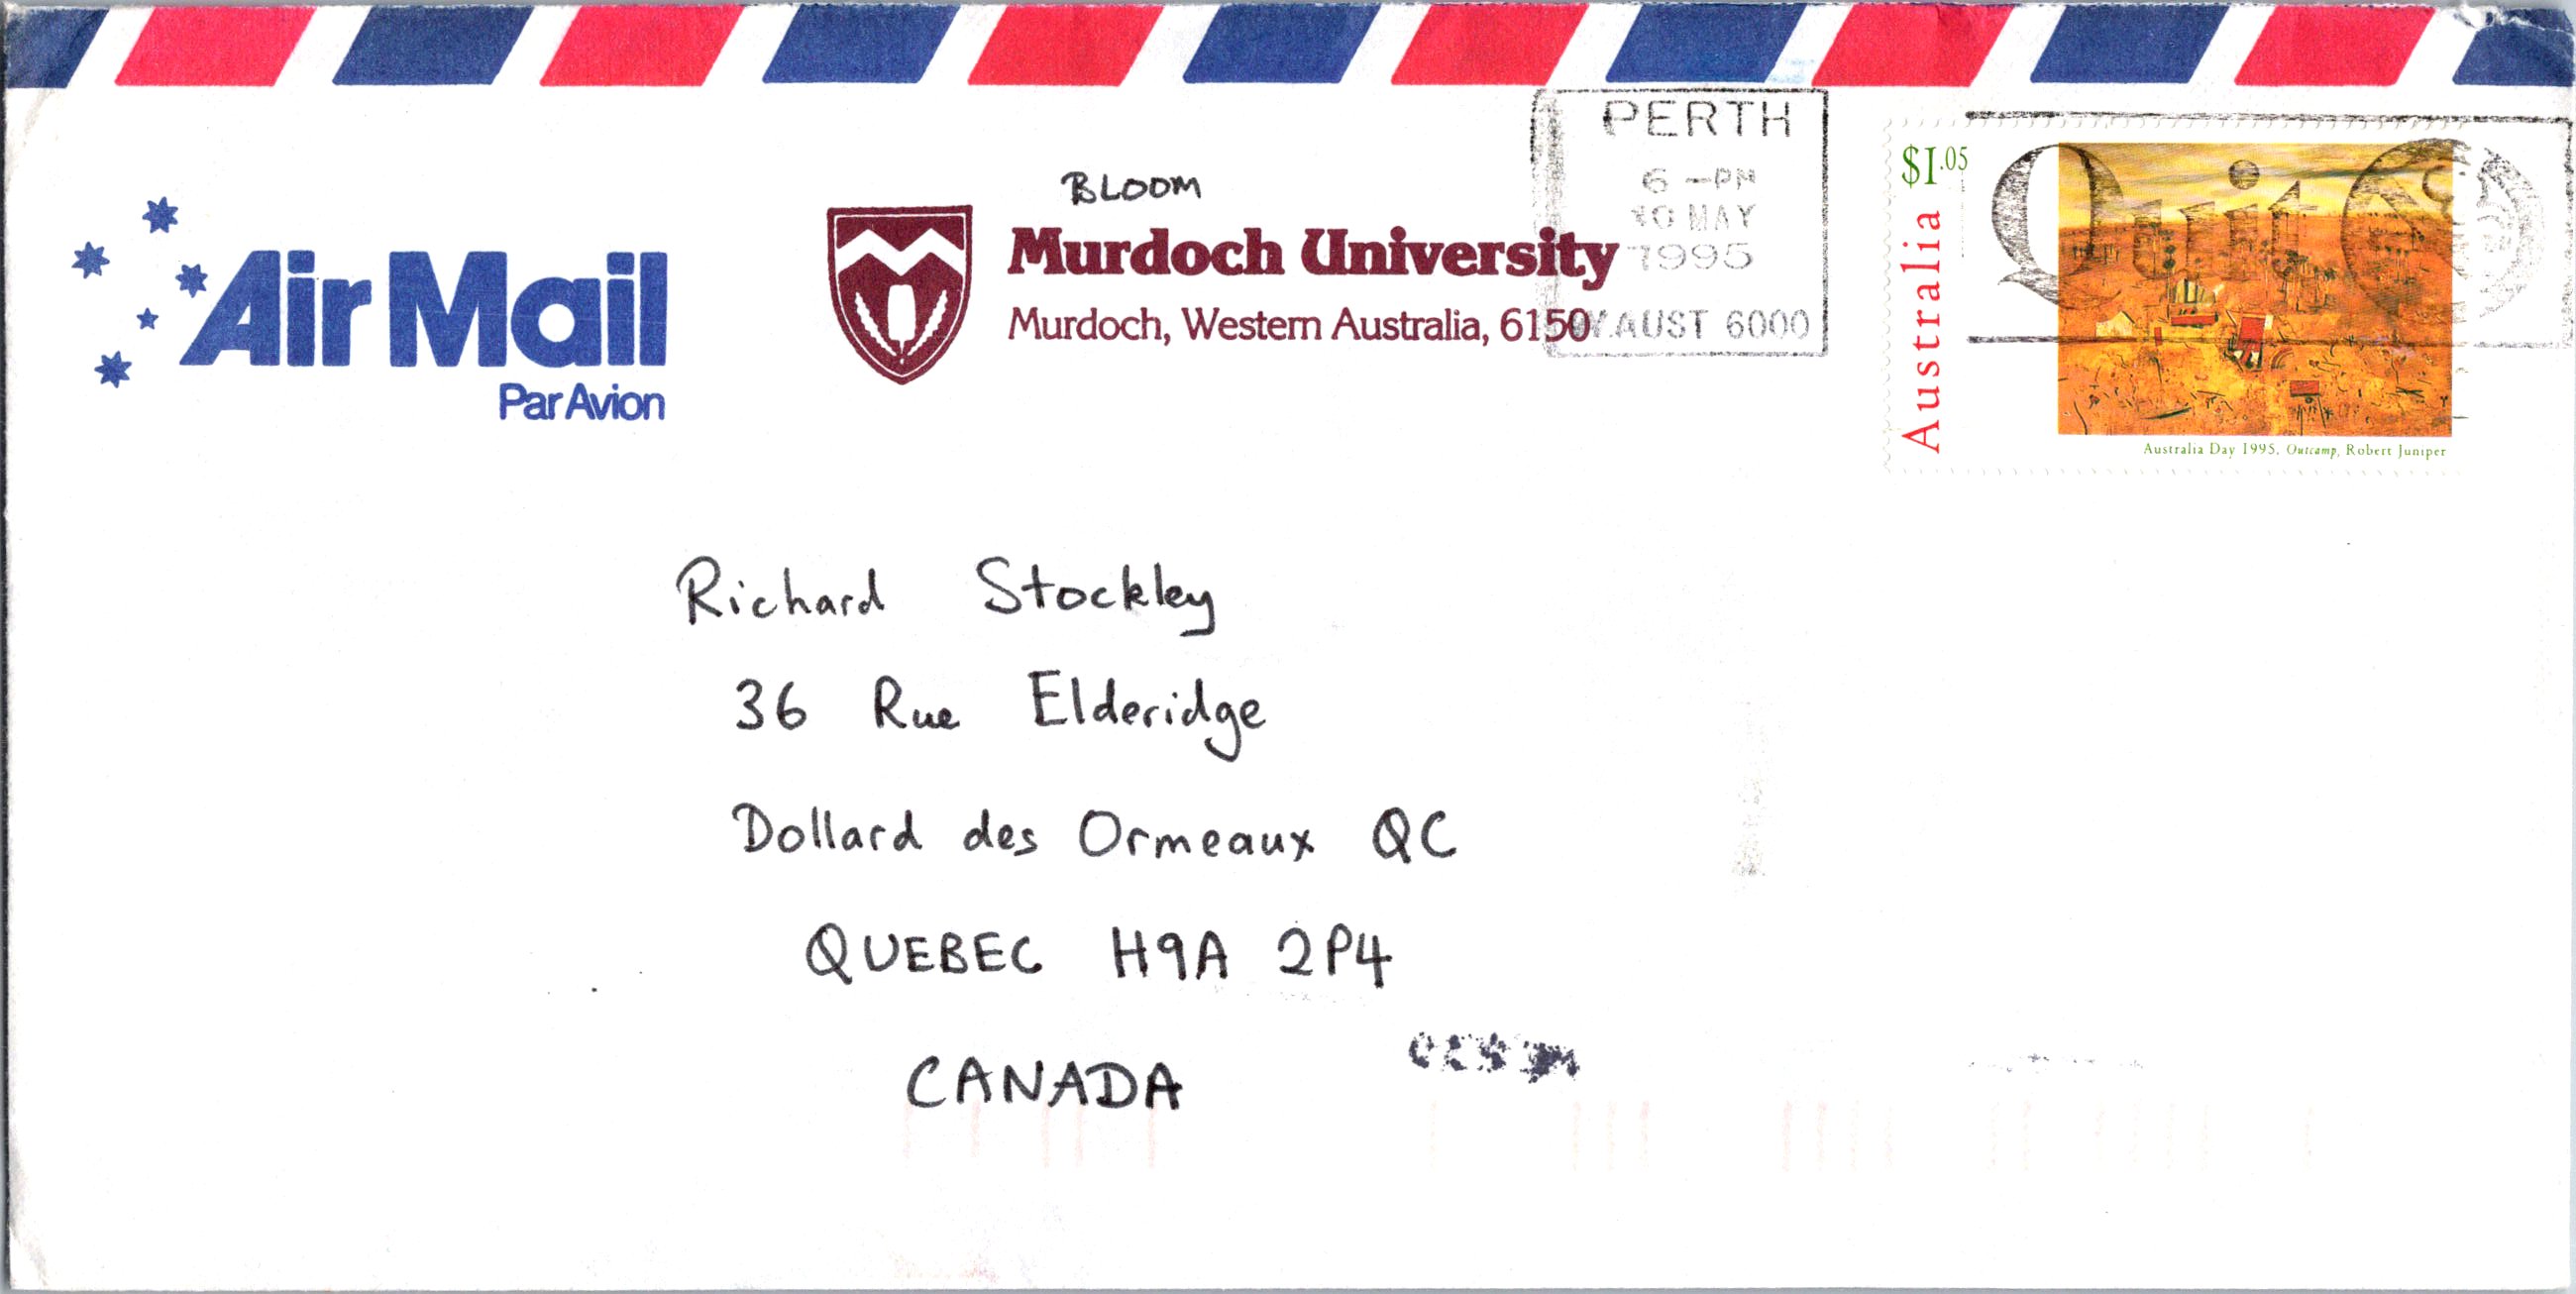 BLOOM
Air Mail
Par Avion
Murdoch University
Murdoch, Western Australia, 6150
PERTH
6 -PM
10 MAY
1995
W.AUST 6000
Quit
$1.05
Australia
Australia Day 1995, Outcamp, Robert Juniper
Richard Stockley
36 Rue Elderidge
Dollard des Ormeaux QC
QUEBEC H9A 2P4
CANADA